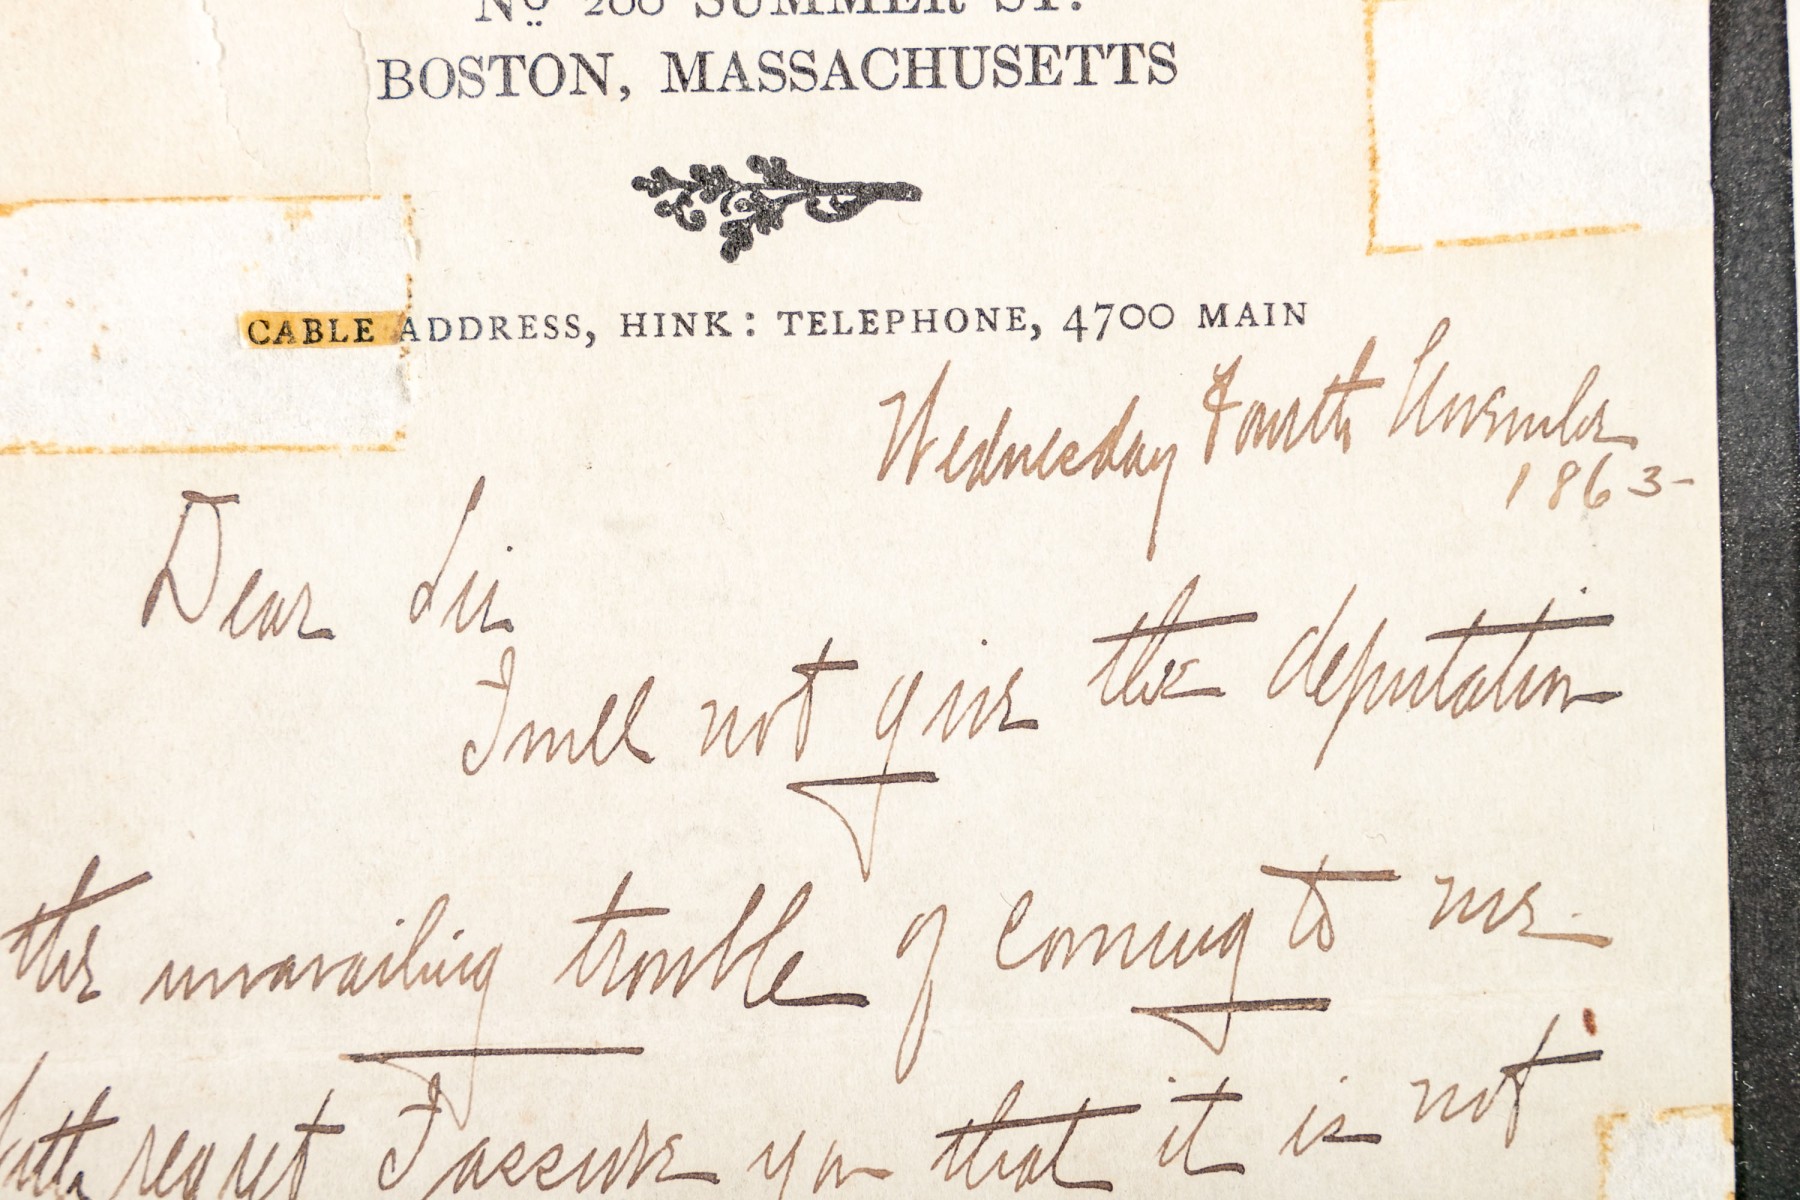 No 200 SUMMER ST.
BOSTON, MASSACHUSETTS
CABLE ADDRESS, HINK: TELEPHONE, 4700 MAIN
Wednesday Fourth November
1863-
Dear Sir
I will not give the deputation
the unavailing trouble of coming to me.
With regret I assure you that it is not